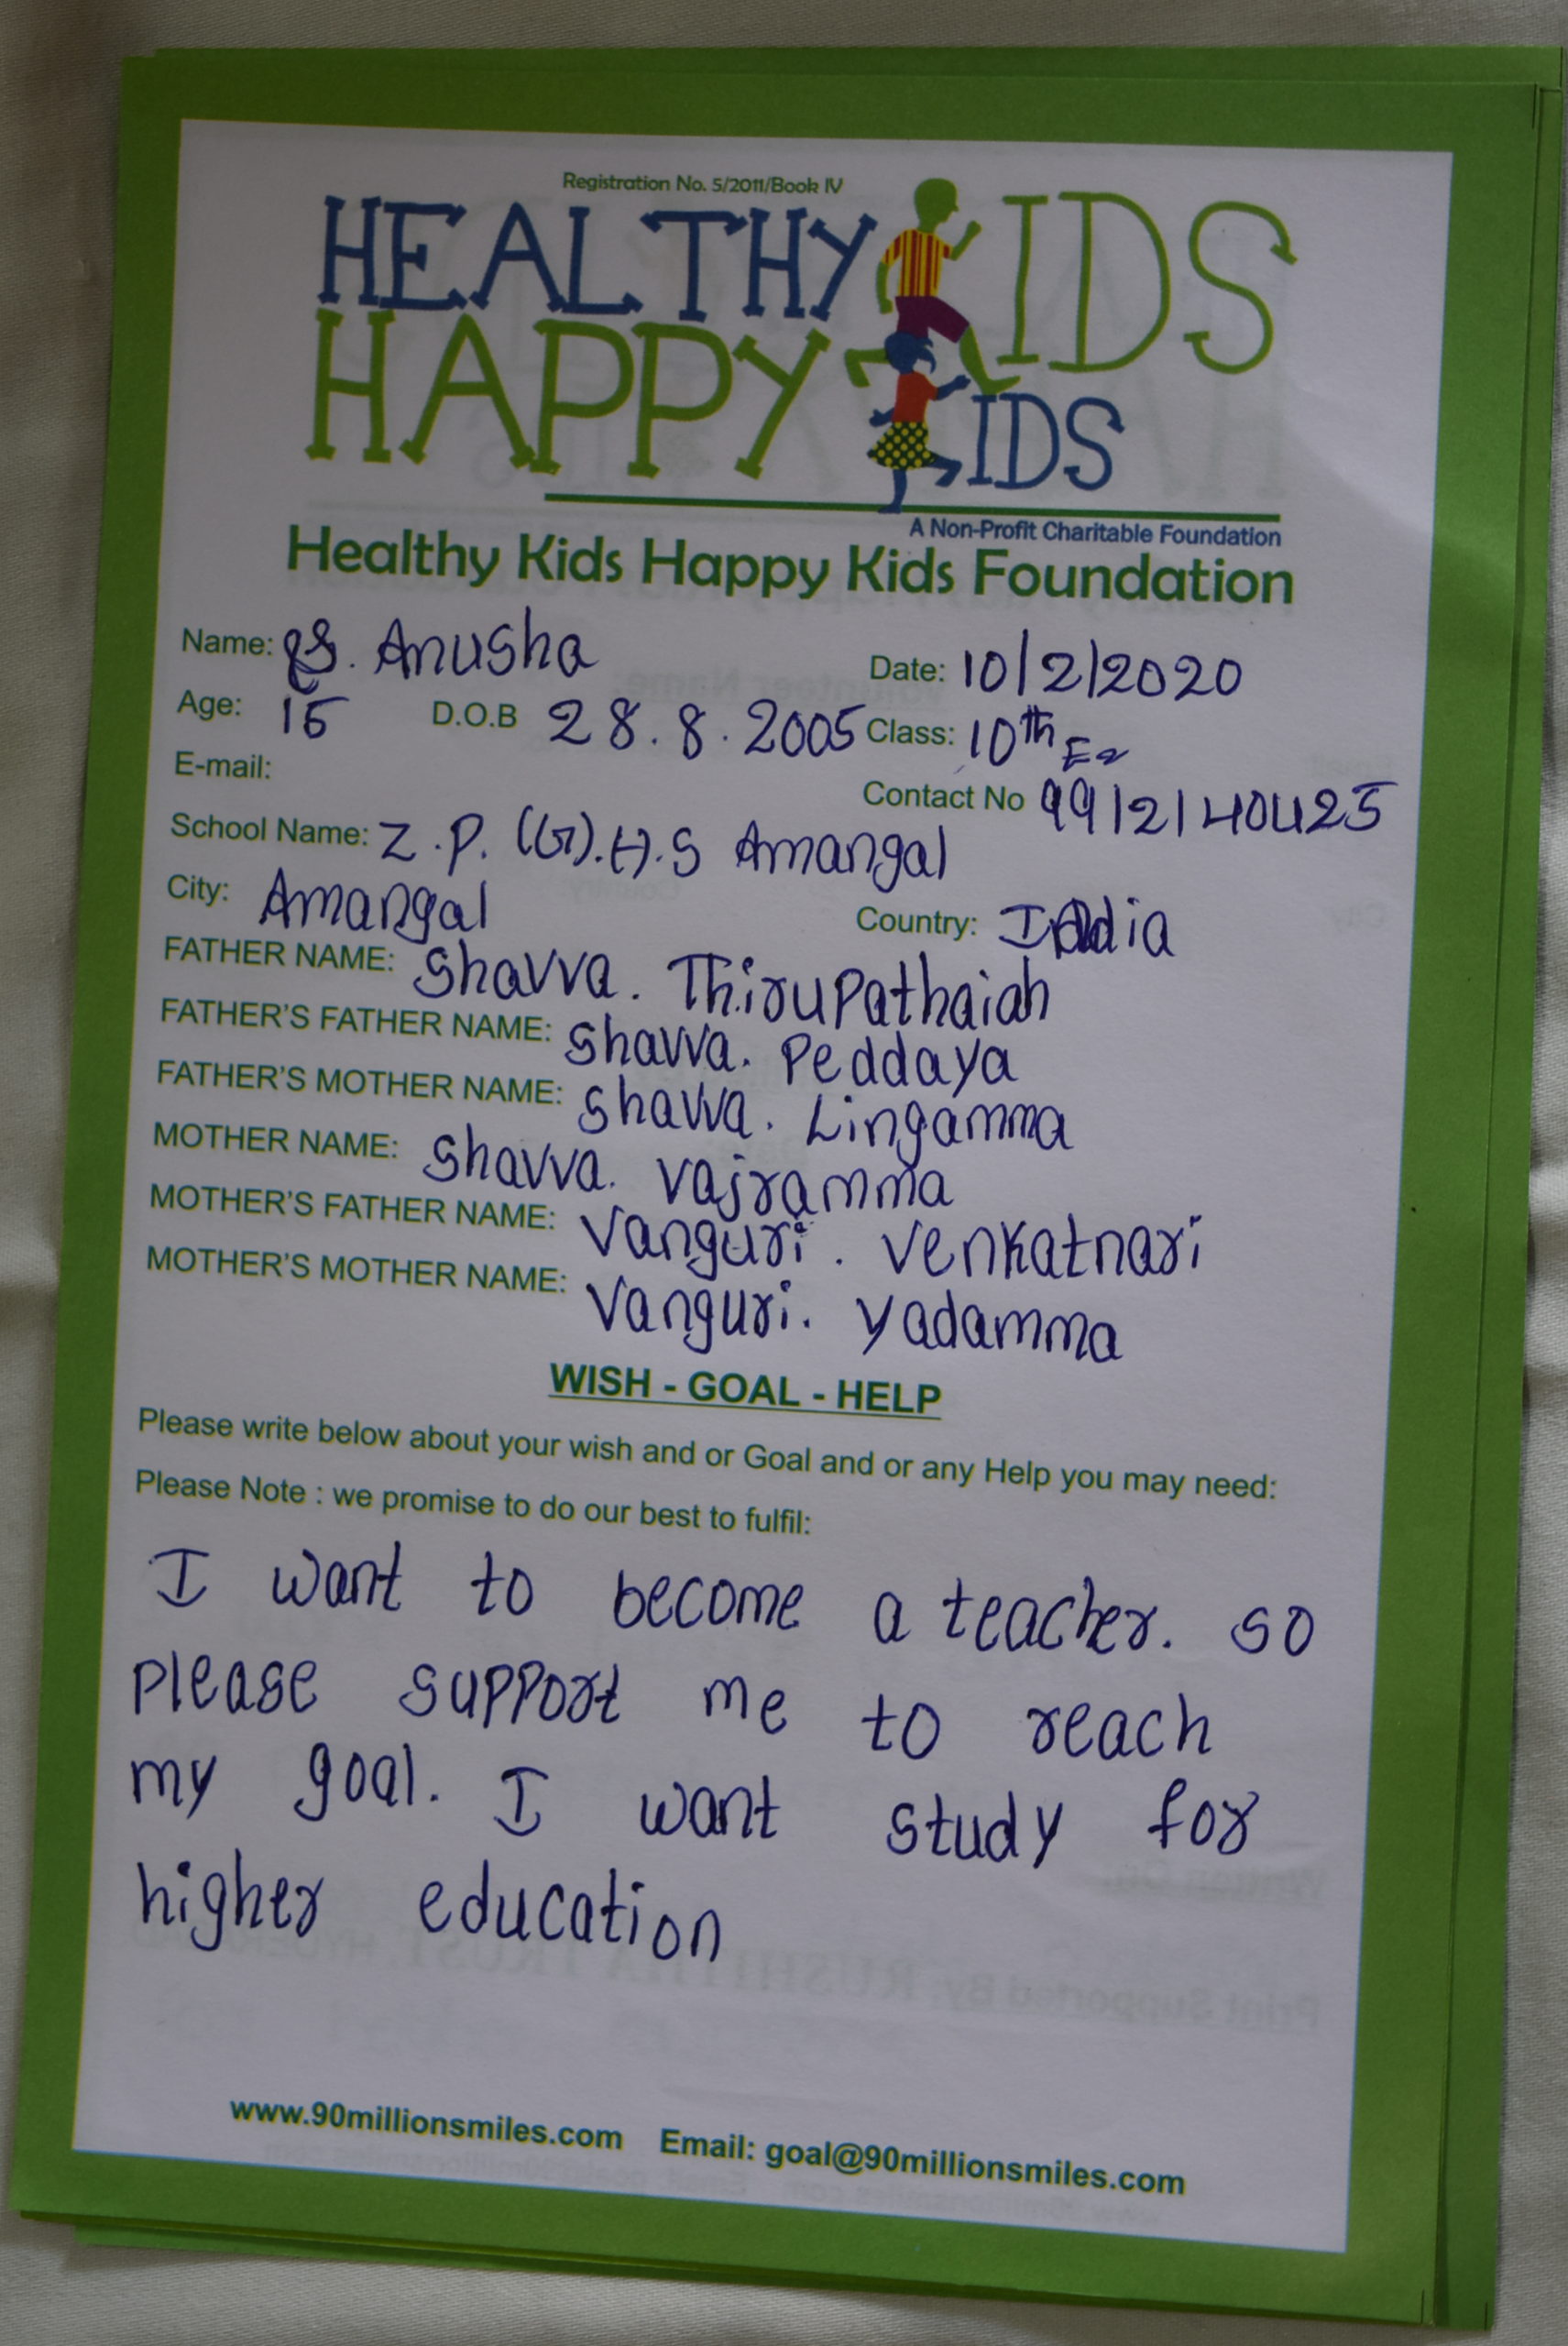 Registration No. 5/2011/Book IV
HEALTHY KIDS
HAPPY KIDS
A Non-Profit Charitable Foundation
Healthy Kids Happy Kids Foundation
Name: S. Anusha Date: 10/2/2020
Age: 15 D.O.B 28.8.2005 Class: 10th
E-mail: Contact No 9912140425
School Name: Z.P.(G).H.S Amangal
City: Amangal Country: India
FATHER NAME: Shavva. Thirupathaiah
FATHER'S FATHER NAME: Shavva. Peddaya
FATHER'S MOTHER NAME: Shavva. Lingamma
MOTHER NAME: Shavva. Vajramma
MOTHER'S FATHER NAME: Vanguri. Venkatnari
MOTHER'S MOTHER NAME: Vanguri. Yadamma
WISH - GOAL - HELP
Please write below about your wish and or Goal and or any Help you may need:
Please Note : we promise to do our best to fulfil:
I want to become a teacher. so
please support me to reach
my goal. I want study for
higher education
www.90millionsmiles.com Email: goal@90millionsmiles.com